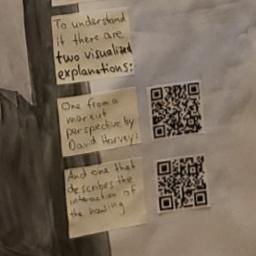 To understand
it there are
two visualized
explanations:
One from a
marxist
perspective by
David Harvey:
And one that
describes the
interaction of
the